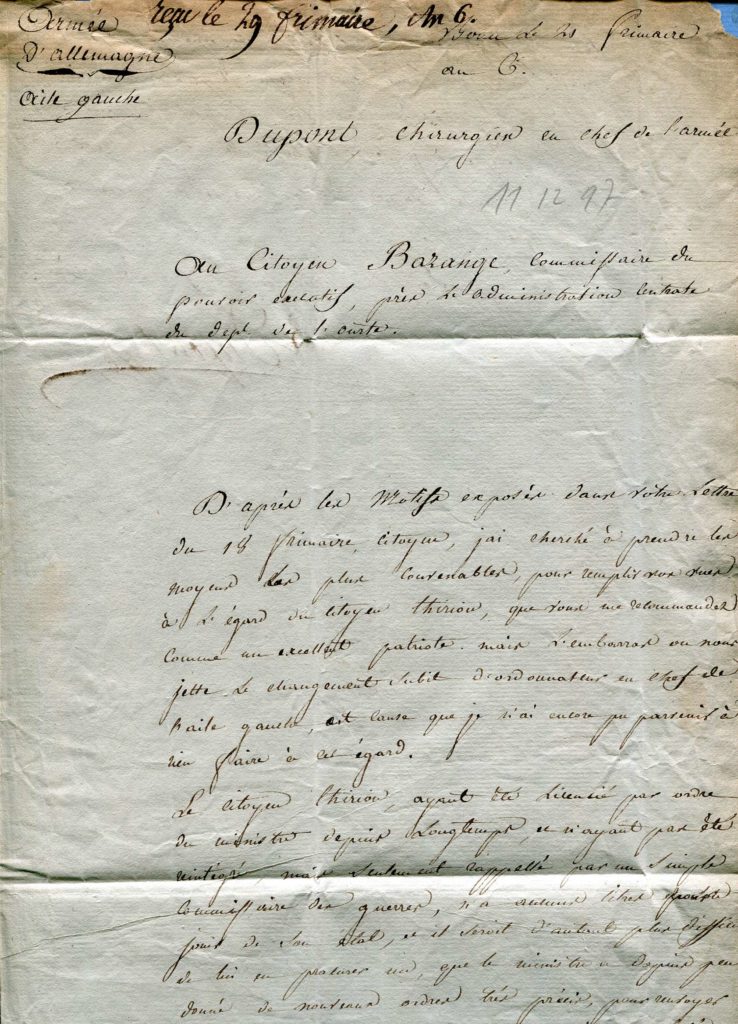 Armée
D'allemagne
Aile gauche
reçu le 29 frimaire, An 6.
Bonn Le 21 frimaire
au 6.
Dupont, chirurgien en chef de l'armée
11 12 97
Au Citoyen Bazange, Commissaire du
pouvoir executif, près Le administration centrale
du dept. de l'ourte.
D'après les Motifs exposés dans vôtre Lettre
du 18 frimaire, Citoyen, j'ai cherché à prendre les
moyens Les plus convenables, pour remplir vos vues
à L'égard du citoyen thirion, que vous me recommandez
comme un excellent patriote. mais L'embarras ou nous
jette Le changement Subit d'ordonnateur en chef de
L'aile gauche, est cause que je n'ai encore pu parvenir à
rien faire à cet égard.
Le citoyen thirion, ayant été Licencié par ordre
du ministre depuis Longtemps, et n'ayant pas été
réintégré, mais Seulement rappellé par un Simple
Commissaire des guerres, n'a aucuns titres pour
jouir de Son état, et il seroit d'autant plus diffici
de lui en procurer un, que le ministre a depuis peu
donné de nouveaux ordres très précis, pour renvoyer